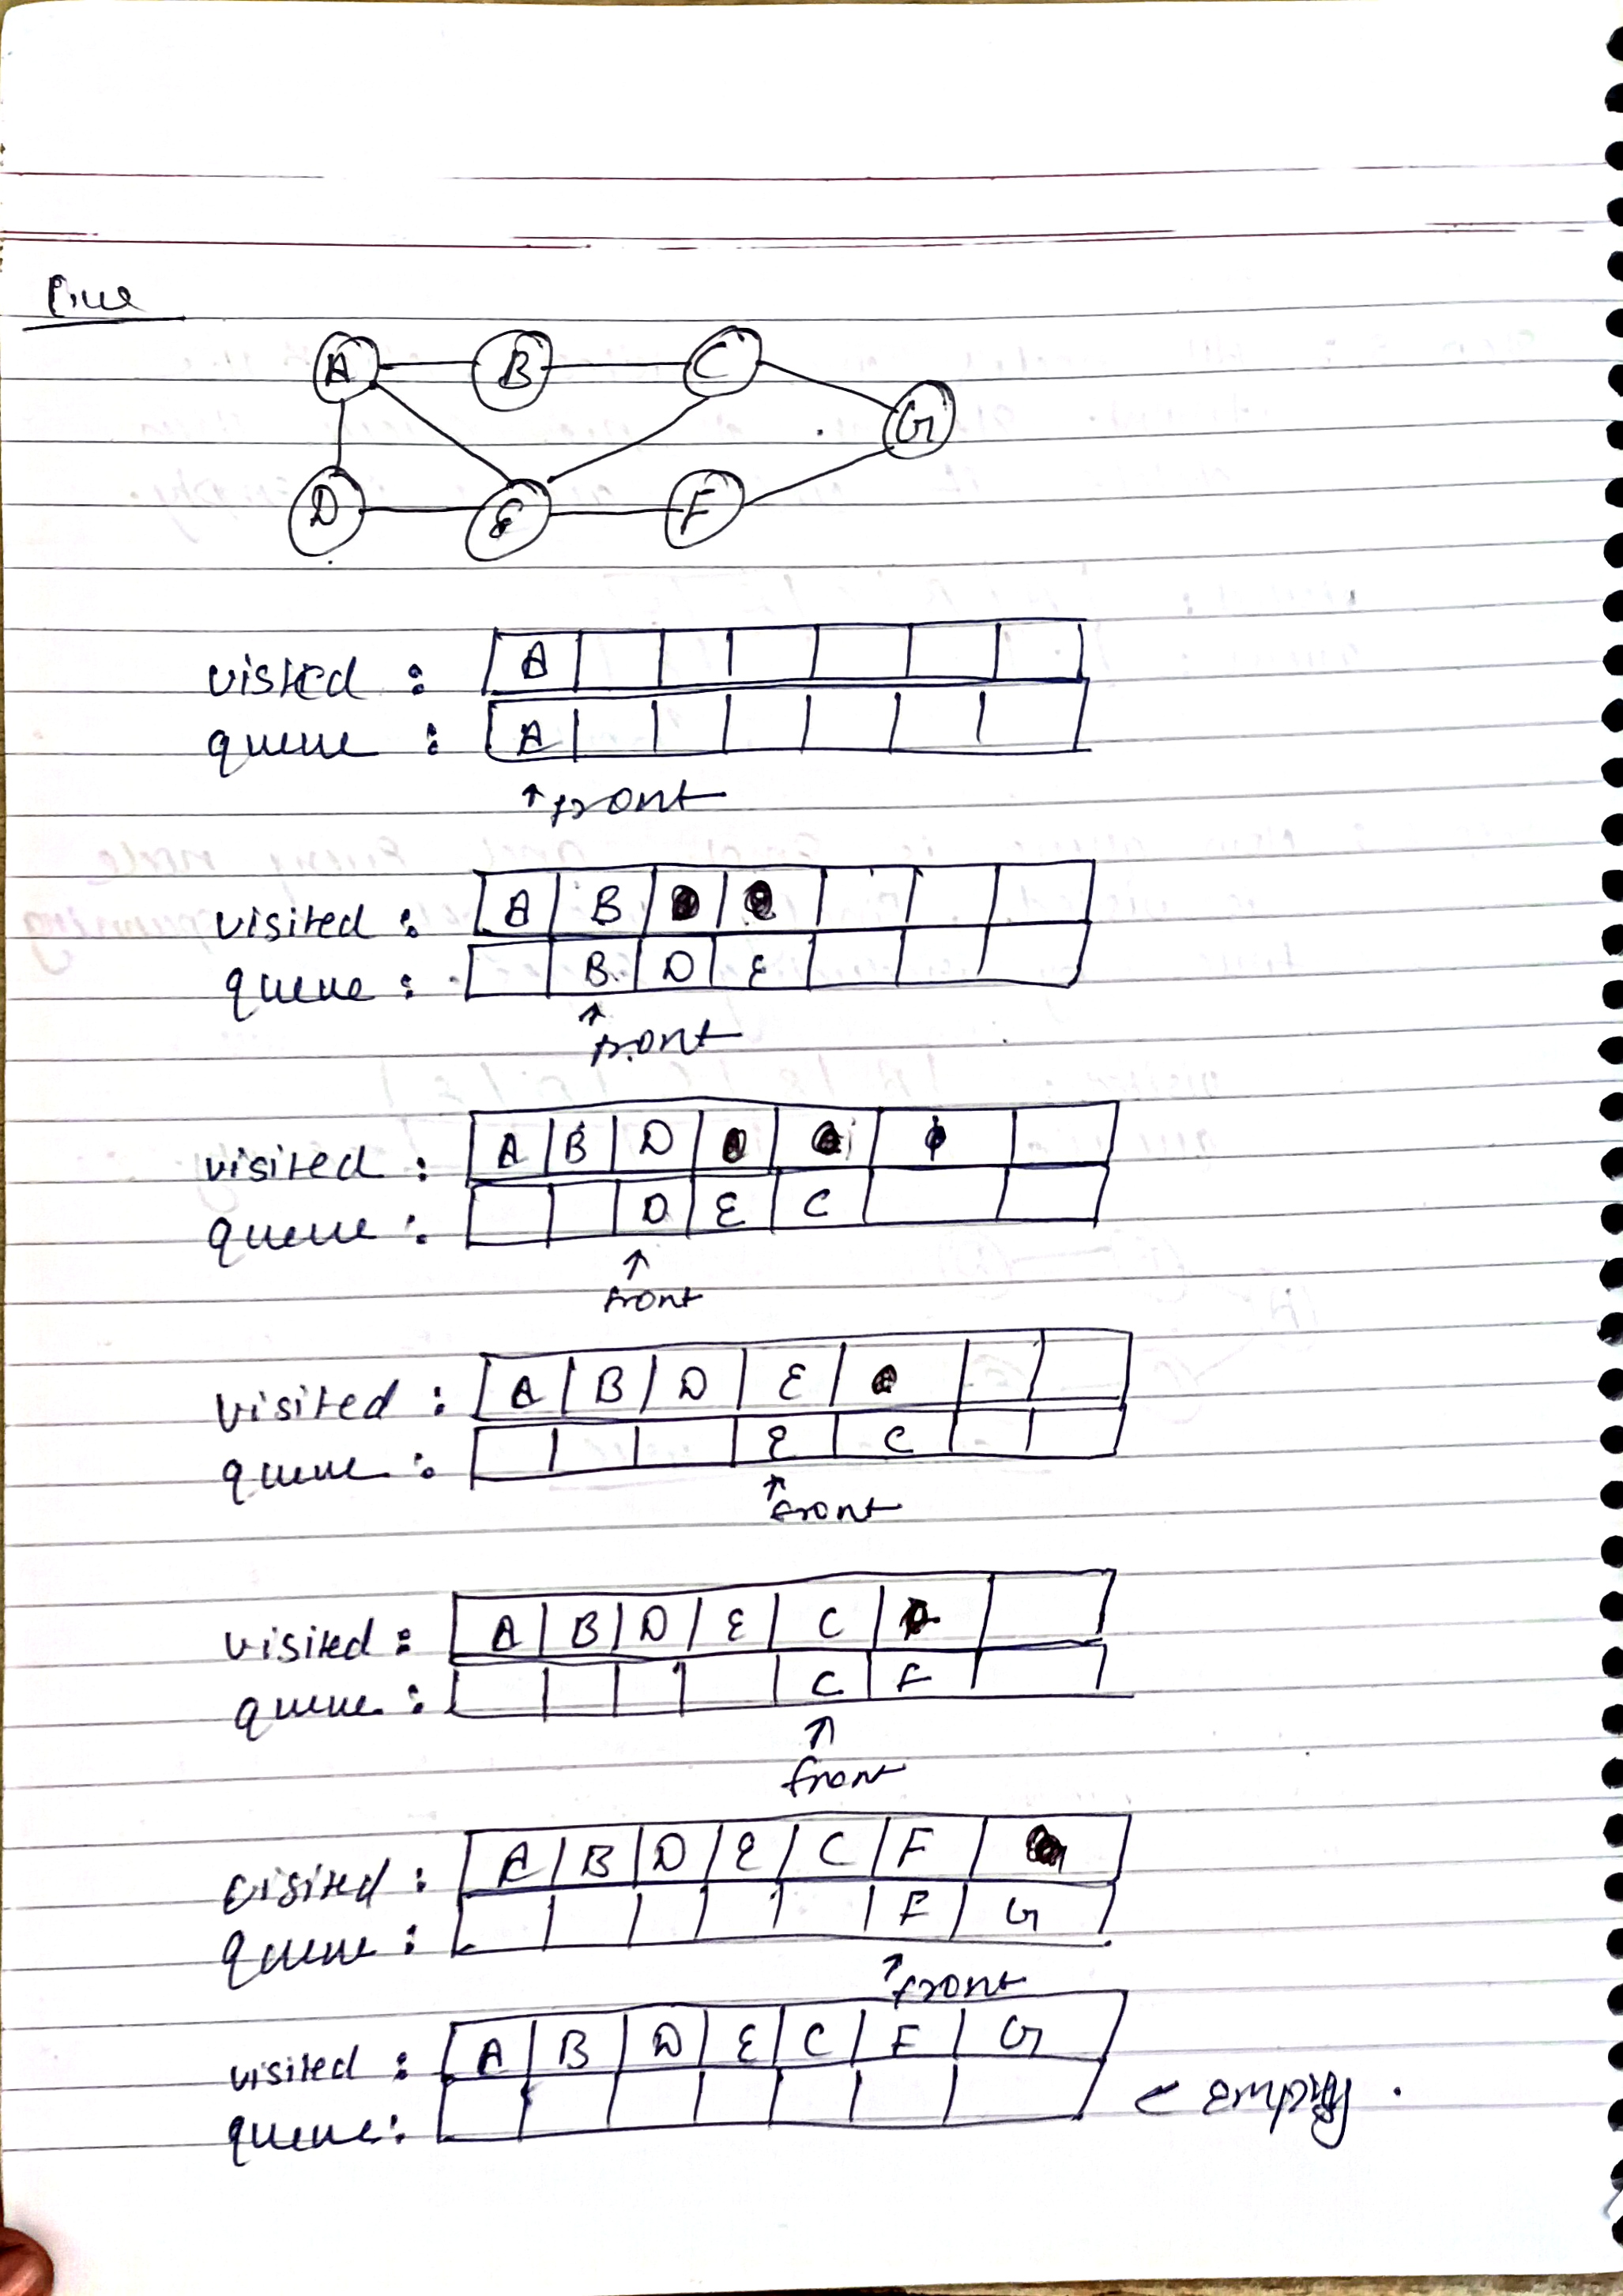 A B C
G
D E F
visted : A
queue : A
↑ front
visited : A B
queue : B D E
↑ front
visited : A B D
queue : D E C
↑
front
visited : A B D E
queue : E C
↑ front
visited : A B D E C
queue : C F
↑
front
visited : A B D E C F
queue : F G
↑ front
visited : A B D E C F G
queue : ← empty .